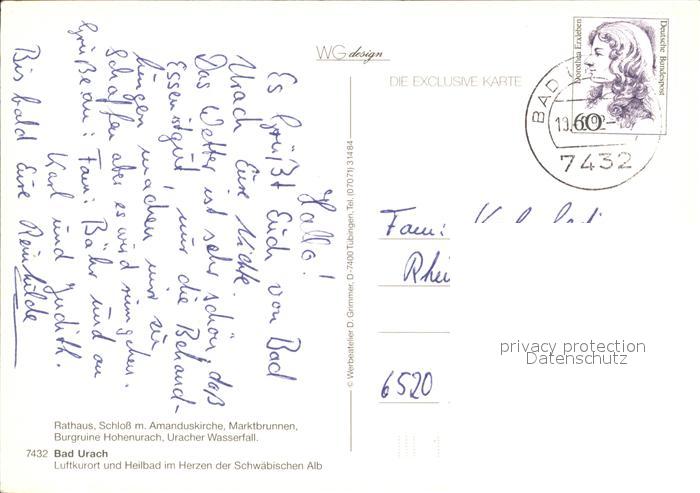 Hallo!
Es grüßt Euch von Bad
Urach Eure Nichte.
Das Wetter ist sehr schön, das
Essen ist gut, nur die Behand-
lungen machen mir zu
schaffen aber es wird rumgehen.
Grüße an: Fam: Bähr und an
Karl und Judith.
Bis bald Eure Reinhilde
WG design
DIE EXCLUSIVE KARTE
Dorothea Erxleben
Deutsche Bundespost
60
BAD
7432
Fam:
Rhei
6520
© Werbeatelier D. Grimmer, D-7400 Tübingen, Tel. (07071) 31484
privacy protection
Datenschutz
Rathaus, Schloß m. Amanduskirche, Marktbrunnen,
Burgruine Hohenurach, Uracher Wasserfall.
7432 Bad Urach
Luftkurort und Heilbad im Herzen der Schwäbischen Alb